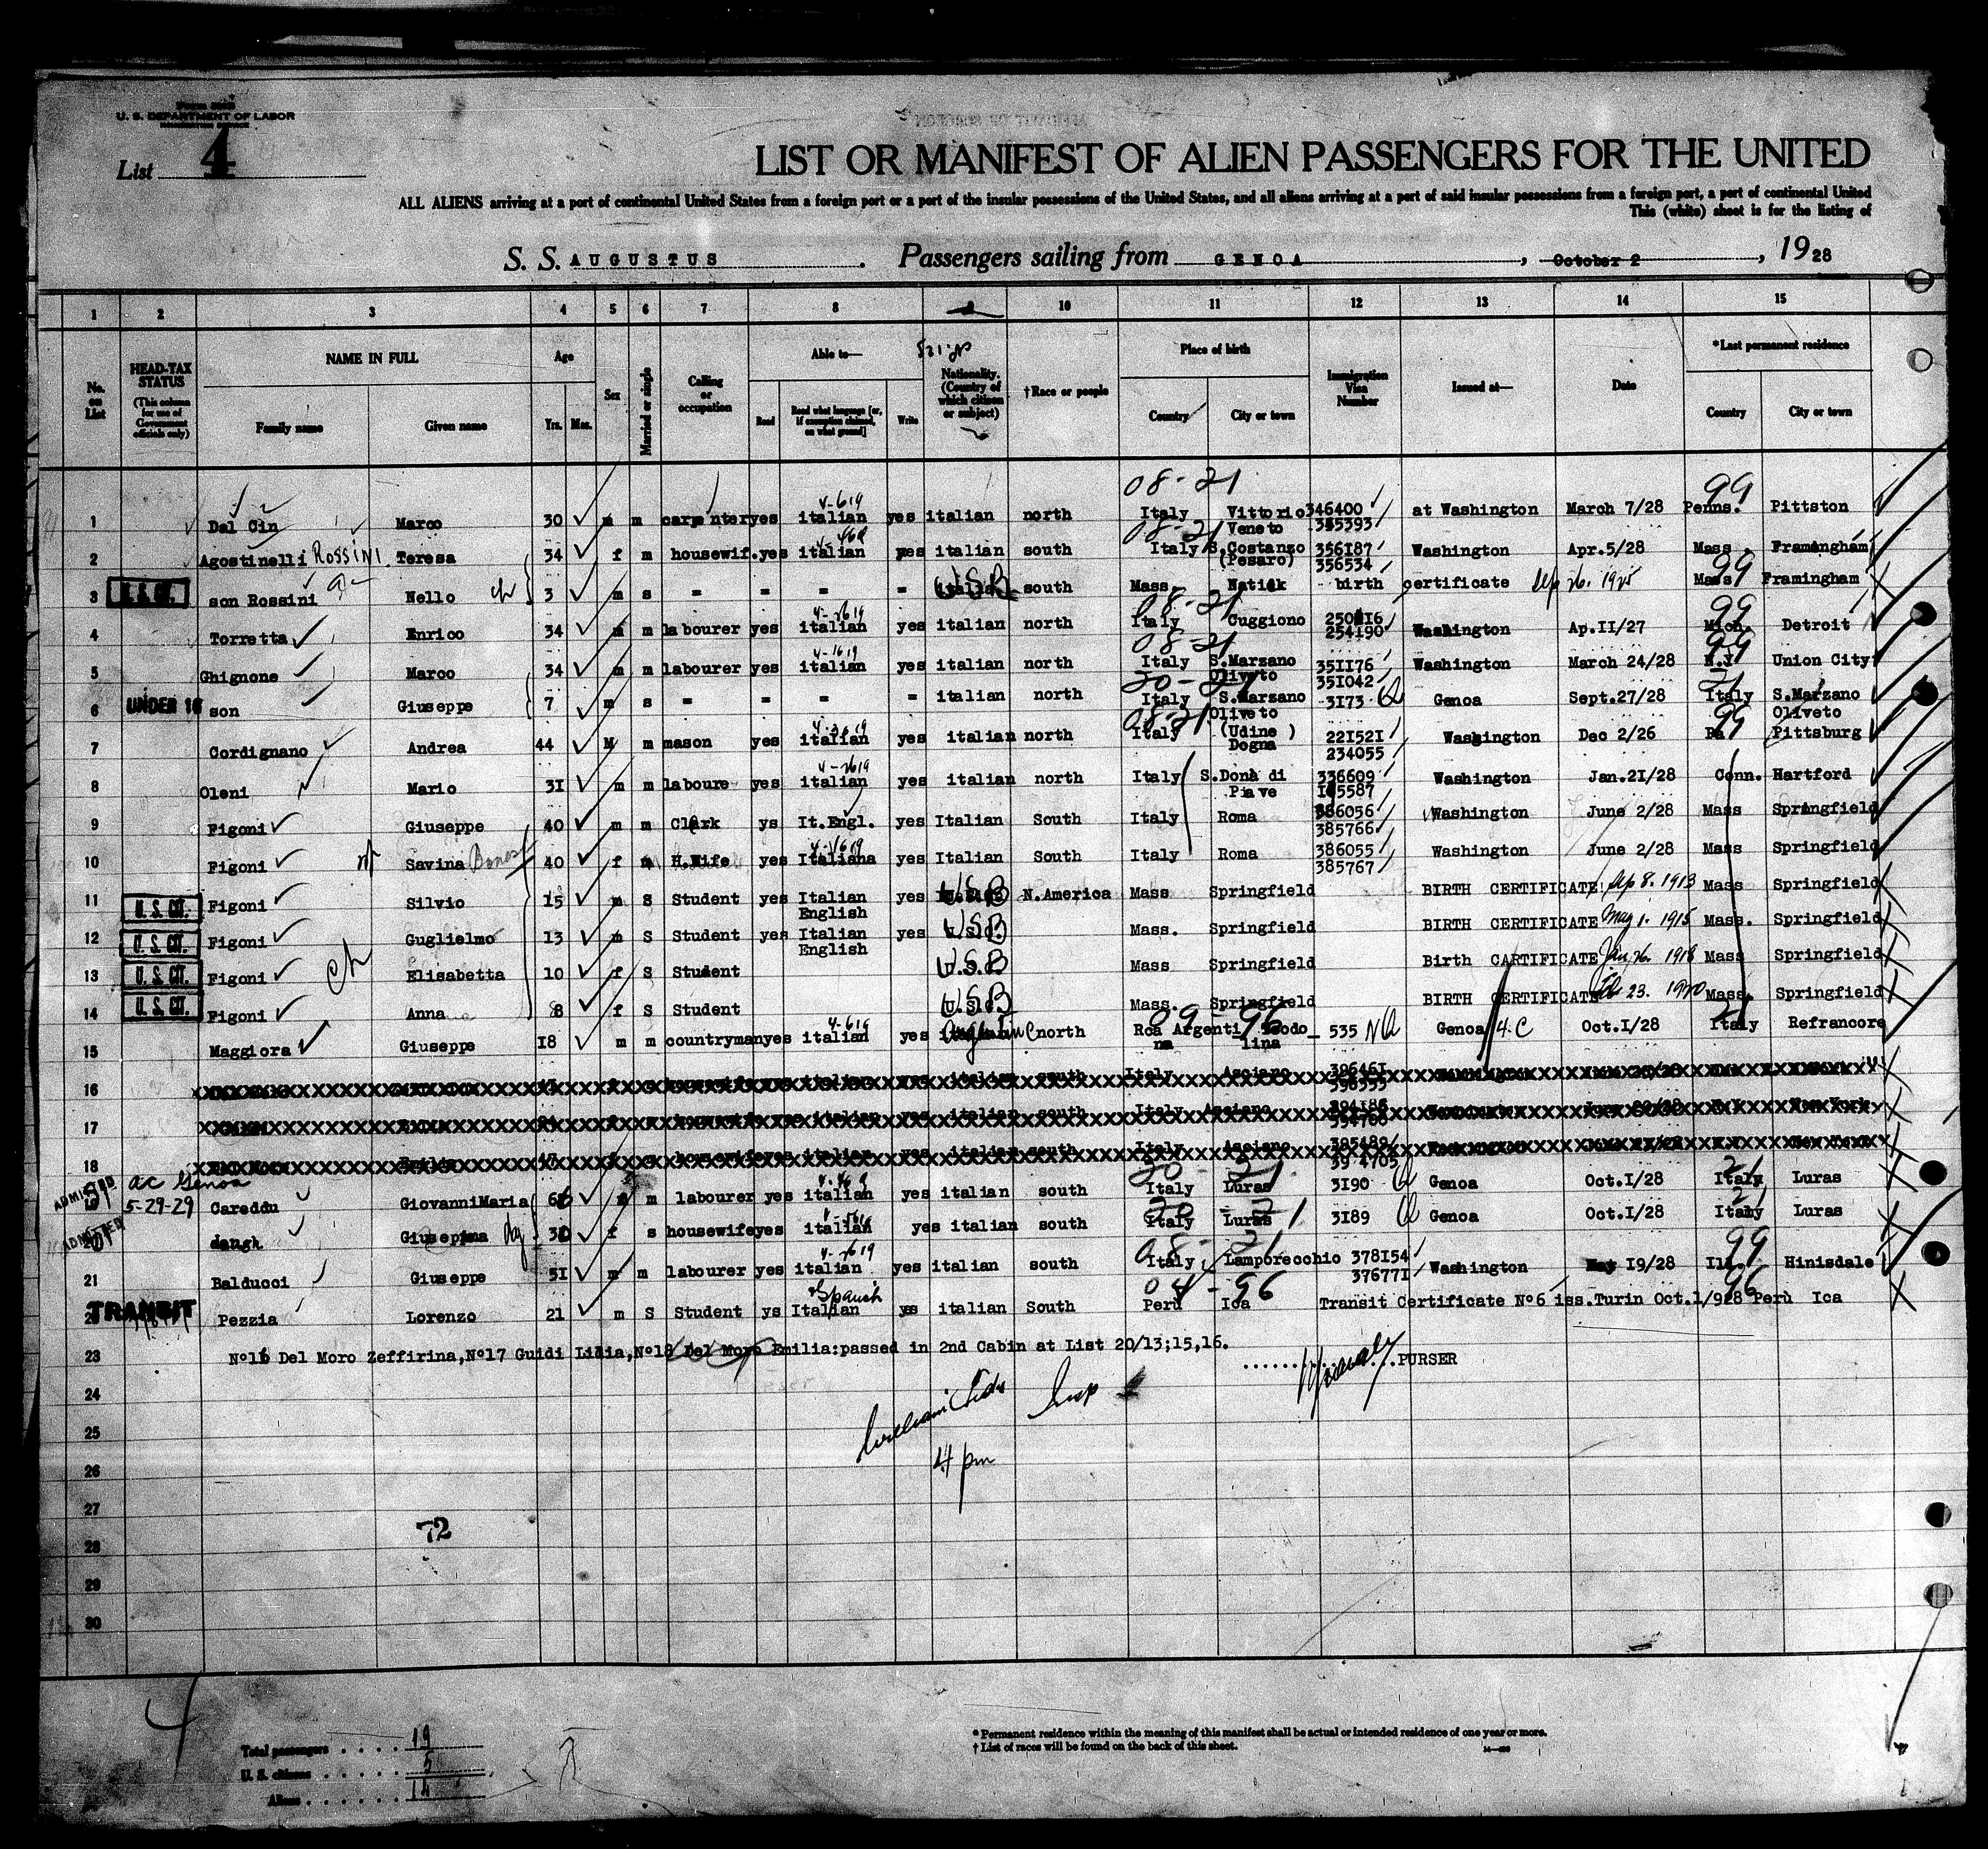 U. S. DEPARTMENT OF LABOR
List 4
LIST OR MANIFEST OF ALIEN PASSENGERS FOR THE UNITED
ALL ALIENS arriving at a port of continental United States from a foreign port or a port of the insular possessions of the United States, and all aliens arriving at a port of said insular possessions from a foreign port, a port of continental United
This (white) sheet is for the listing of
S. S. AUGUSTUS. Passengers sailing from GENOA, October 2, 1928
1 2 3 4 5 6 7 8 10 11 12 13 14 15
No. on List
HEAD-TAX STATUS (This column for use of Government officials only)
NAME IN FULL Family name Given name
Age Yrs. Mos.
Sex
Married or single
Calling or occupation
Able to— Read Read what language [or, if exemption claimed, on what ground] Write
Nationality. (Country of which citizen or subject)
†Race or people
Place of birth Country City or town
Immigration Visa Number
Issued at—
Date
*Last permanent residence Country City or town
1 Dal Cin Marco 30 m m carpenter yes italian yes italian north Italy Vittorio Veneto 346400 345393 at Washington March 7/28 Penns. Pittston
2 Agostinelli ROSSINI Teresa 34 f m housewif. yes italian yes italian south Italy S.Costanzo (Pesaro) 356187 356534 Washington Apr.5/28 Mass. Framingham
3 U.S. CIT. son Rossini Nello ch 3 m s = = = = USB south Mass. Natick birth certificate Sep 26. 1925 Mass Framingham
4 Torretta Enrico 34 m m labourer yes italian yes italian north Italy Cuggiono 254190 Washington Ap.II/27 Mich. Detroit
5 Ghignone Marco 34 m m labourer yes italian yes italian north Italy S.Marzano Oliveto 351176 351042 Washington March 24/28 N.Y Union City
6 UNDER 16 son Giuseppe 7 m s = = = = italian north Italy S.Marzano Oliveto 3173 Genoa Sept.27/28 Italy S.Marzano Oliveto
7 Cordignano Andrea 44 M m mason yes italian yes italian north Italy (Udine ) Dogna 221521 234055 Washington Dec 2/26 Pa Pittsburg
8 Oleni Mario 31 m m laboure yes italian yes italian north Italy S.Donà di Piave 336609 Washington Jan.21/28 Conn. Hartford
9 Figoni Giuseppe 40 m m Clerk ys It.Engl. yes Italian South Italy Roma 386056 385766 Washington June 2/28 Mass Springfield
10 Figoni Savina 40 f m H.Wife yes Italiana yes Italian South Italy Roma 386055 385767 Washington June 2/28 Mass Springfield
11 U.S. CIT. Figoni Silvio 15 m S Student yes Italian English yes USB N.America Mass Springfield BIRTH CERTIFICATE Sep 8. 1913 Mass Springfield
12 U.S. CIT. Figoni Guglielmo 13 m S Student yes Italian English yes USB Mass. Springfield BIRTH CERTIFICATE May 1. 1915 Mass. Springfield
13 U.S. CIT. Figoni ch Elisabetta 10 f S Student USB Mass Springfield Birth CARTIFICATE Jan, 26. 1918 Mass Springfield
14 U.S. CIT. Figoni Anna 8 f S Student USB Mass. Springfield BIRTH CERTIFICATE Feb 23. 1920 Mass. Springfield
15 Maggiora Giuseppe 18 m m countryman yes italian yes north Rca Argentina 535 Genoa 4-C Oct.I/28 Italy Refrancore
16 italian south Italy Asciano 396461
17 italian yes italian south Italy Asciano
18 Emilia housewife yes italian yes italian south Italy Asciano 395489 39 4705
19 ADMITTED ac Genoa 5-29-29 Careddu GiovanniMaria m labourer yes italian yes italian south Italy Luras 3190 Genoa Oct.I/28 Italy Luras
20 ADMITTED Giusepina f s housewife yes italian yes italian south Italy Luras 3189 Genoa Oct.I/28 Italy Luras
21 Balducci Giuseppe 51 m m labourer yes italian yes italian south Italy Lamporecchio 378154 376771 Washington May 19/28 Ill. Hinisdale
22 TRANSIT Pezzia Lorenzo 21 m S Student ys Italian +Spanish yes italian South Perù Ica Transit Certificate N°6 iss.Turin Oct.1/928 Perù Ica
23 N°16 Del Moro Zeffirina,N°17 Guidi Lidia,N°18 Del Moro Emilia:passed in 2nd Cabin at List 20/13;15,16. PURSER
24
25
26 4 pm
27
28 72
29
30
4
Total passengers . . . . 19
U. S. citizens . . . . . 5
Aliens . . . . . . 14
* Permanent residence within the meaning of this manifest shall be actual or intended residence of one year or more.
† List of races will be found on the back of this sheet.